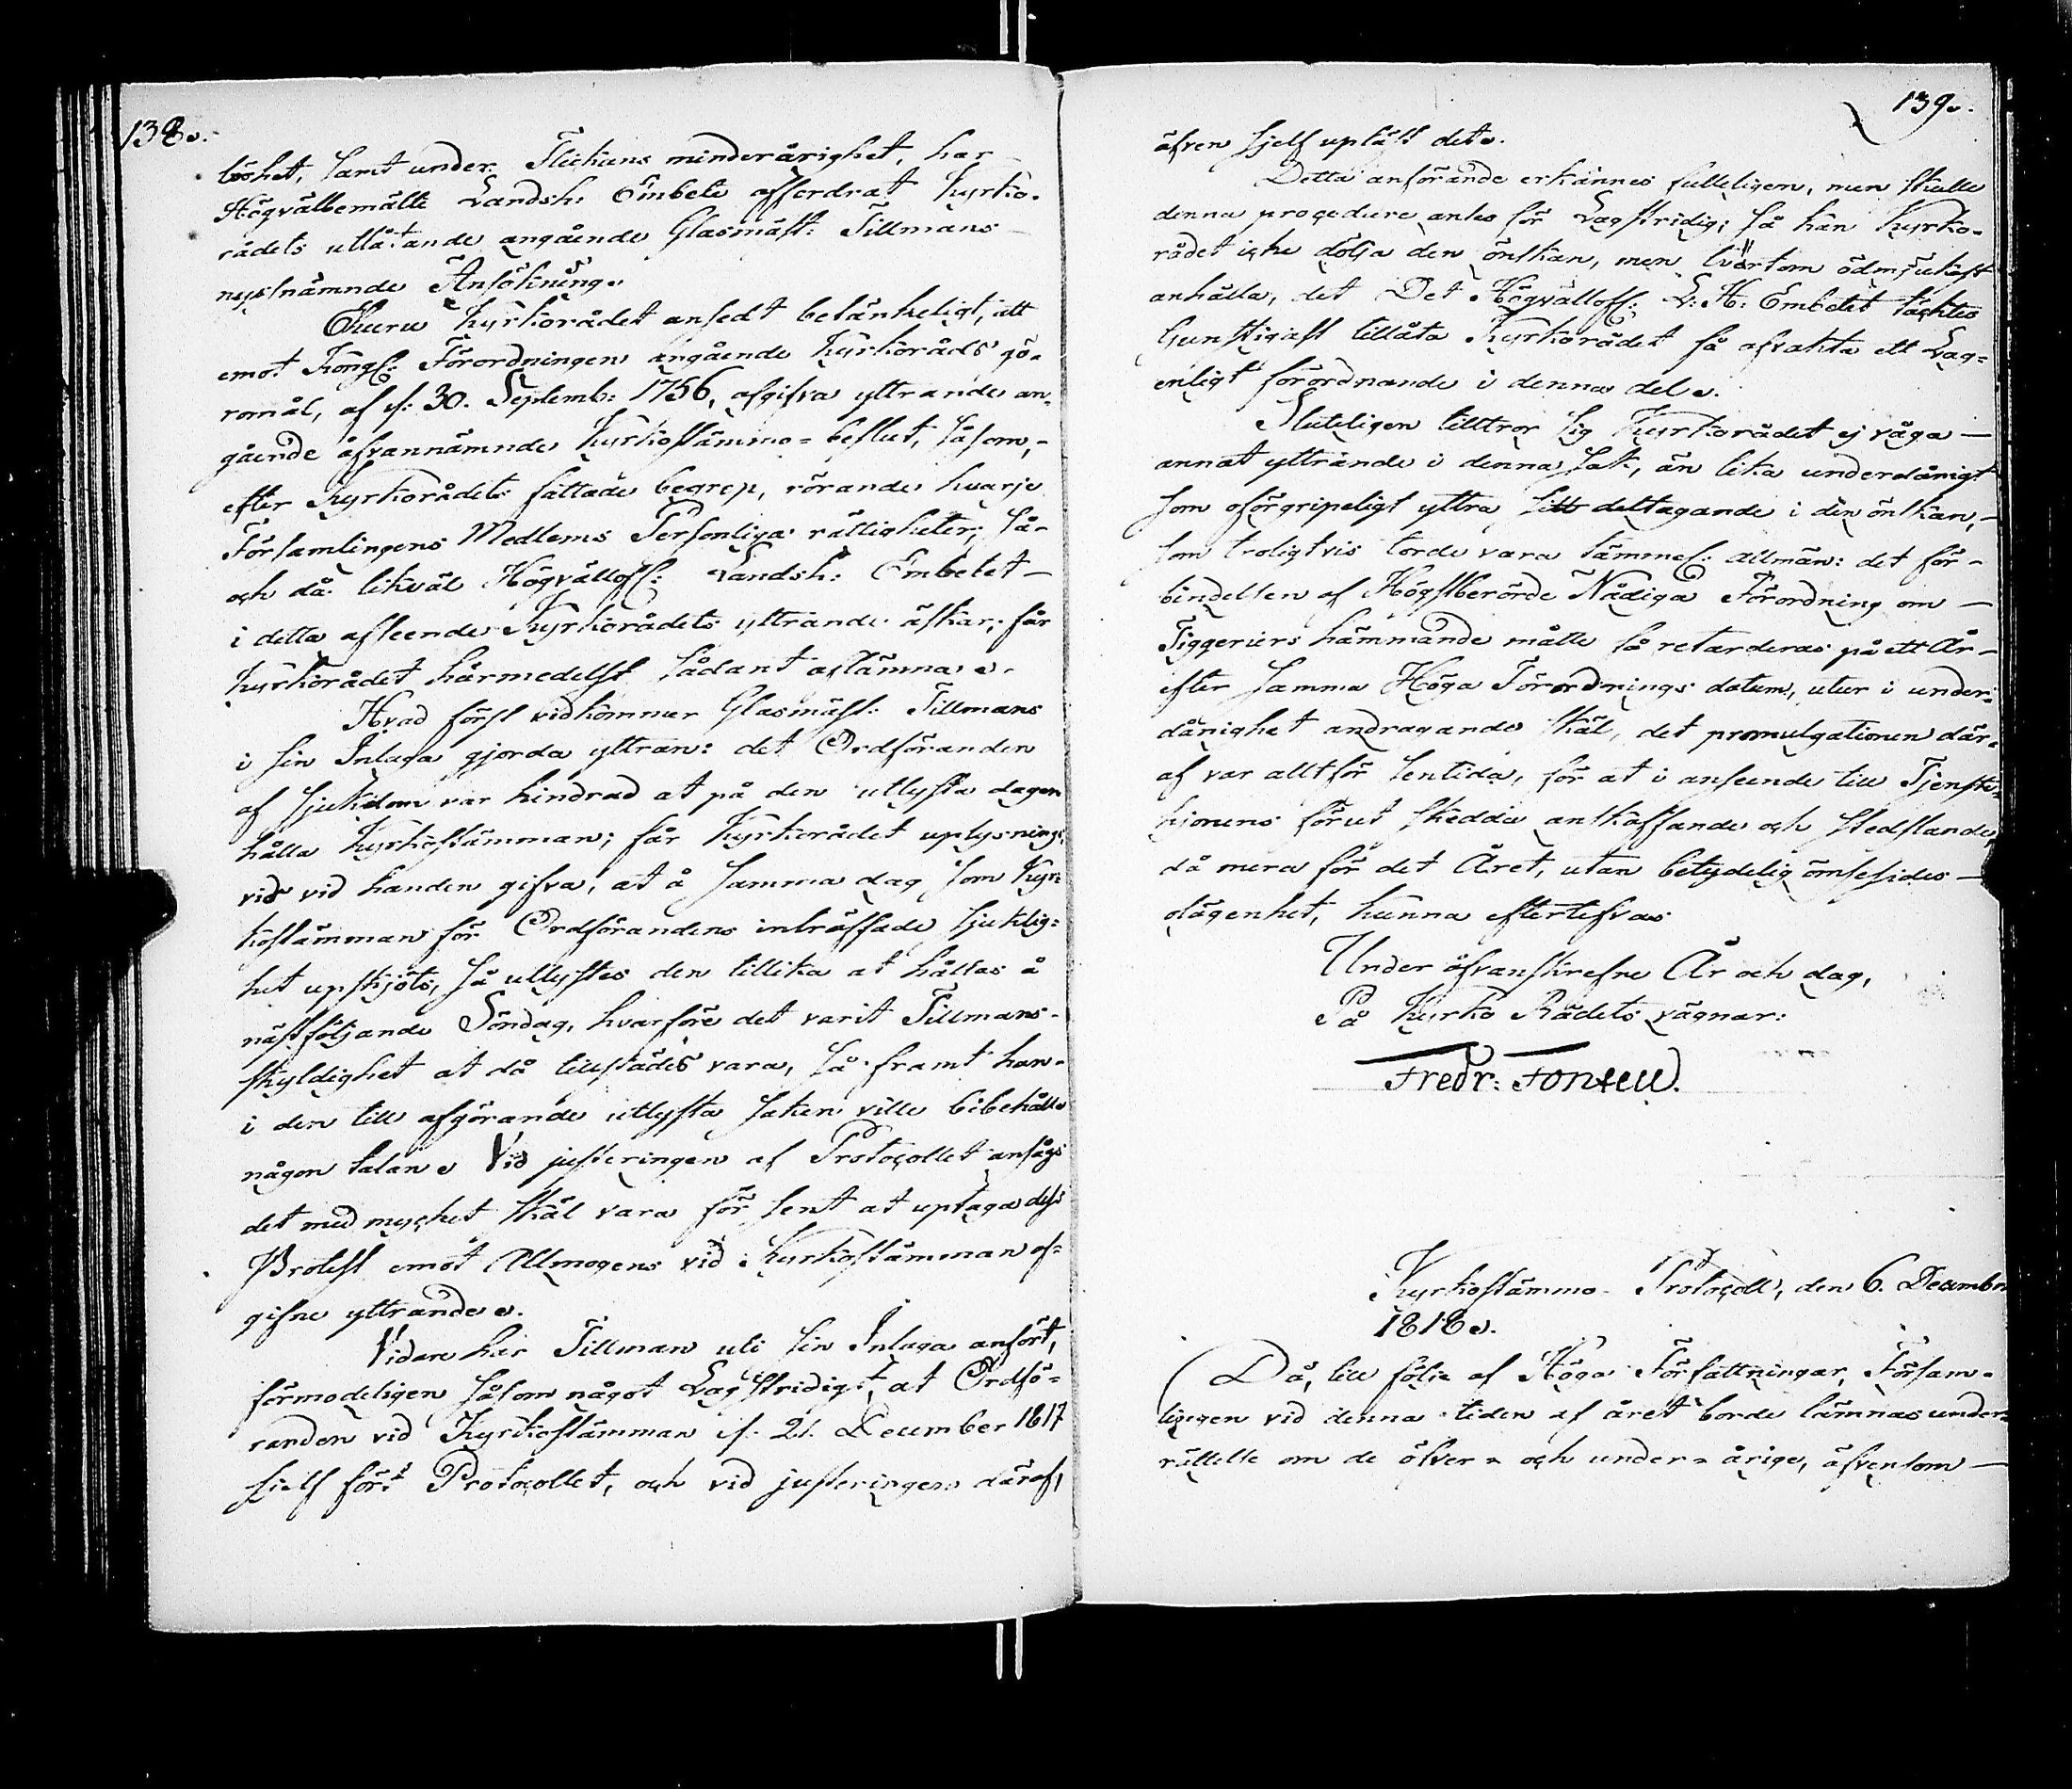 138.
löshet, samt under Flickans minderårighet, har
Högvälbemälte Landsh: Embete affordrat Kyrko-
rådets utlåtande angående Glasmäst: Tillmans
nysnämnde Ansökning.
Ehuru Kyrkorådet ansedt betänkeligt, att
emot Kongl: Förordningen angående Kyrkoråds gö-
romål, af d: 30. Septemb: 1756, afgifva yttrande an-
gående ofvannämnde Kyrkostämmo-beslut, såsom,
efter Kyrkorådets fattade begrep, rörande hvarje
Församlingens Medlems Personliga rättigheter; så-
och då likväl Högvällofl: Landsh: Embetet
i detta afseende Kyrkorådets yttrande äskar; får
Kyrkorådet härmedelst sådant aflämna.
Hvad först vidkommer Glasmäst: Tillmans
i sin Inlaga gjorda yttran: det Ordföranden
af sjukdom var hindrad at på den utlysta dagen
hålla Kyrkostämman; får Kyrkorådet uplysnings-
vis vid handen gifva, at å samma dag som Kyr-
kostämman för Ordförandens inträffade sjuklig-
het upskjöts, så utlystes den tillika at hållas å
nästföljande Söndag, hvarföre det varit Tillmans
skyldighet at då tillstädes vara, så framt han
i den till afgörande utlysta saken ville bibehålla
någon talan. Vid justeringen af Protocollet ansågs
det med mycket skäl vara för sent at uptaga dess
Protest emot Allmogens vid Kyrkostämman af-
gifne yttrande.
Vidare har Tillman uti sin Inlaga anfört,
förmodeligen såsom något Lagstridigt, at Ordfö-
randen vid Kyrkostämman d. 21. December 1817
sjelf fört Protocollet, och vid justeringen däraf,
139.
äfven sjelf upläst det.
Detta anförande erkännes fulleligen, men skulle
denna procedure anses för Lagstridig; så kan Kyrko-
rådet icke dölja den önskan, men tvärtom ödmjukast
anhålla, det Det Högvällofl: L: H: Embetet täcktes
Gunstigast tillåta Kyrkorådet få afvakta ett Lag-
enligt förordnande i denna del.
Sluteligen tilltror sig Kyrkorådet ej våga
annat yttrande i denna sak, än lika underdånigt
som oförgripeligt yttra sitt deltagande i den önskan,
som troligtvis torde vara tämmel: allmän: det för-
bindelsen af Högstberörde Nådiga Förordning om
Tiggeriers hämmande måtte få retarderas på ett År
efter samma Höga Förordnings datum, utur i under-
dånighet andragande skäl, det promulgationen där-
af var alltför sentida, för at i anseende till Tjenste-
hjonens förut skedda anskaffande och stedslande,
då mera för det Året, utan betydelig ömsesides
olägenhet, kunna efterlefvas
Under ofvanskrefne År och dag,
På Kyrko Rådets vägnar:
Fredr: Fontell.
Kyrkostämmo-Protocoll, den 6. December
1818.
Då, till följe af Höga Författningar, Försam-
lingen vid denna tiden af året borde lämnas under-
rättelse om de öfver- och under-årige, äfvensom